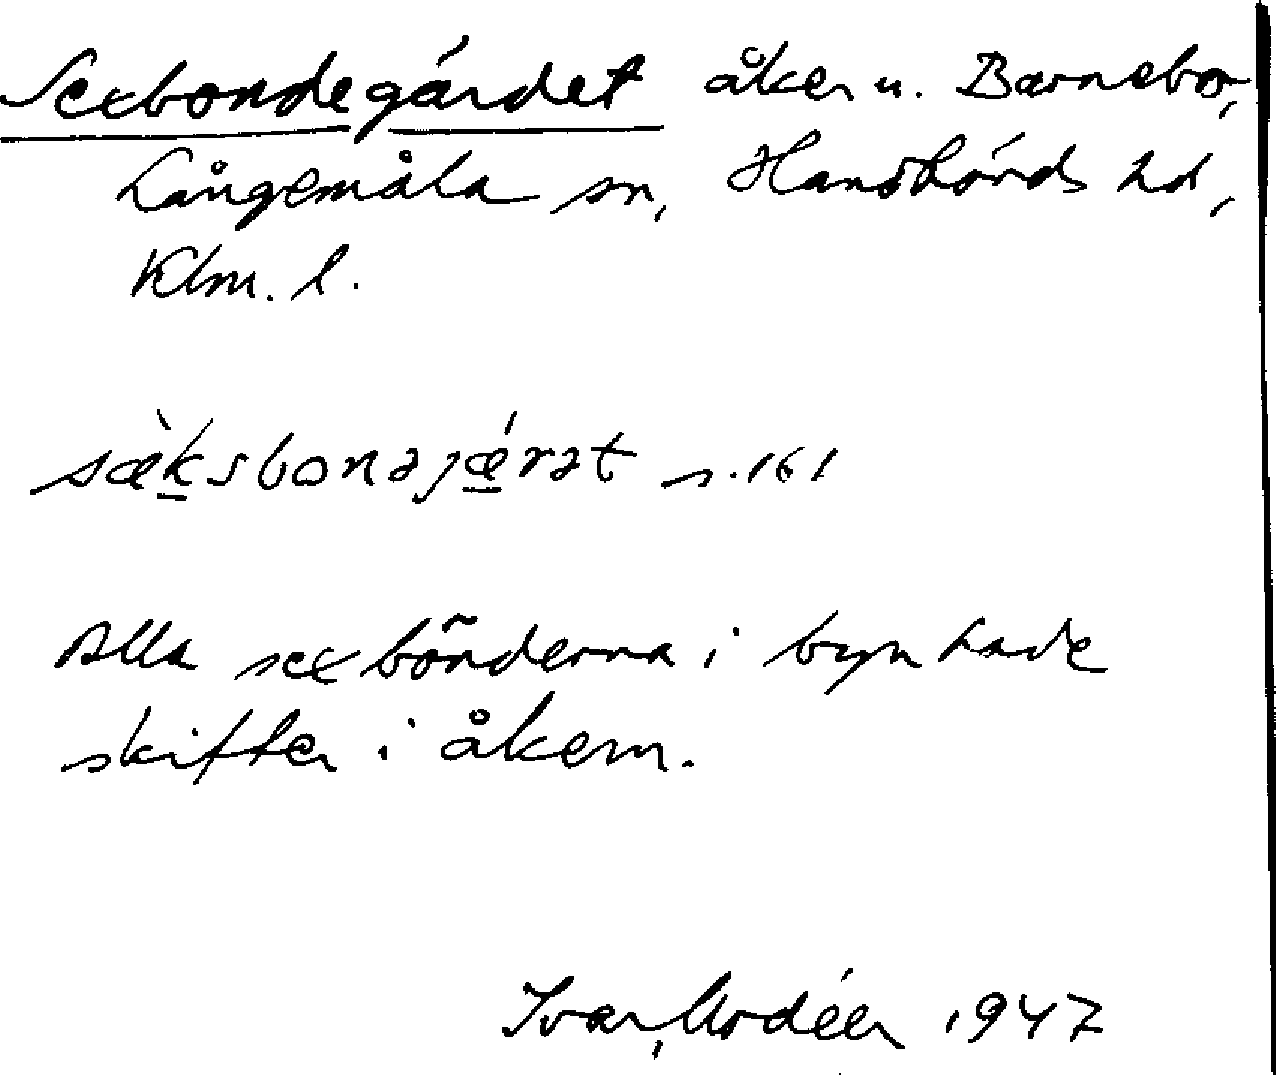 Sexbondegärdet åker u. Barnebo,
Långemåla sn, Handbörds hd,
Klm. l.
sæ̀ksbonəjǽrət s. 161
Alla sex bönderna i byn hade
skiften i åkern.
Ivar Modéer 1947